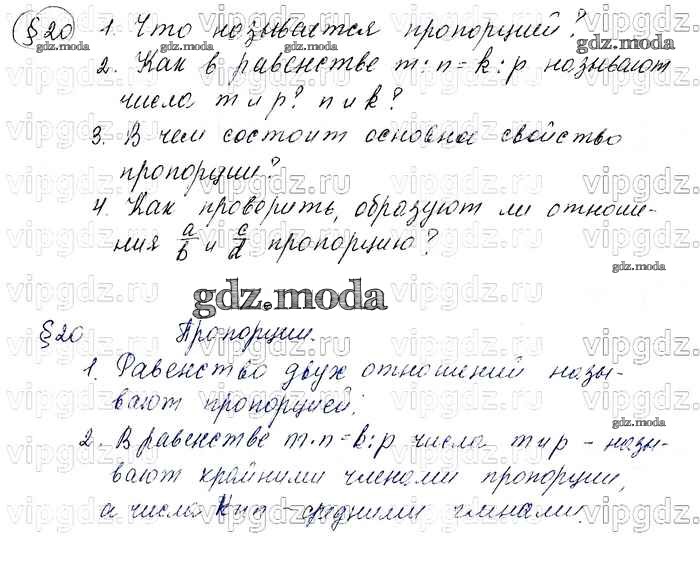 §20 1. Что называется пропорцией?
2. Как в равенстве m:n=k:p называют
числа m и p? n и k?
3. В чем состоит основна свойство
пропорции?
4. Как проверить, образуют ли отноше-
ния a/b и c/d пропорцию?
gdz.moda
§20 Пропорции.
1. Равенство двух отношений назы-
вают пропорцией.
2. В равенстве m:n=k:p числа m и p – назы-
вают крайними членами пропорции,
а числа k и n – средними членами.